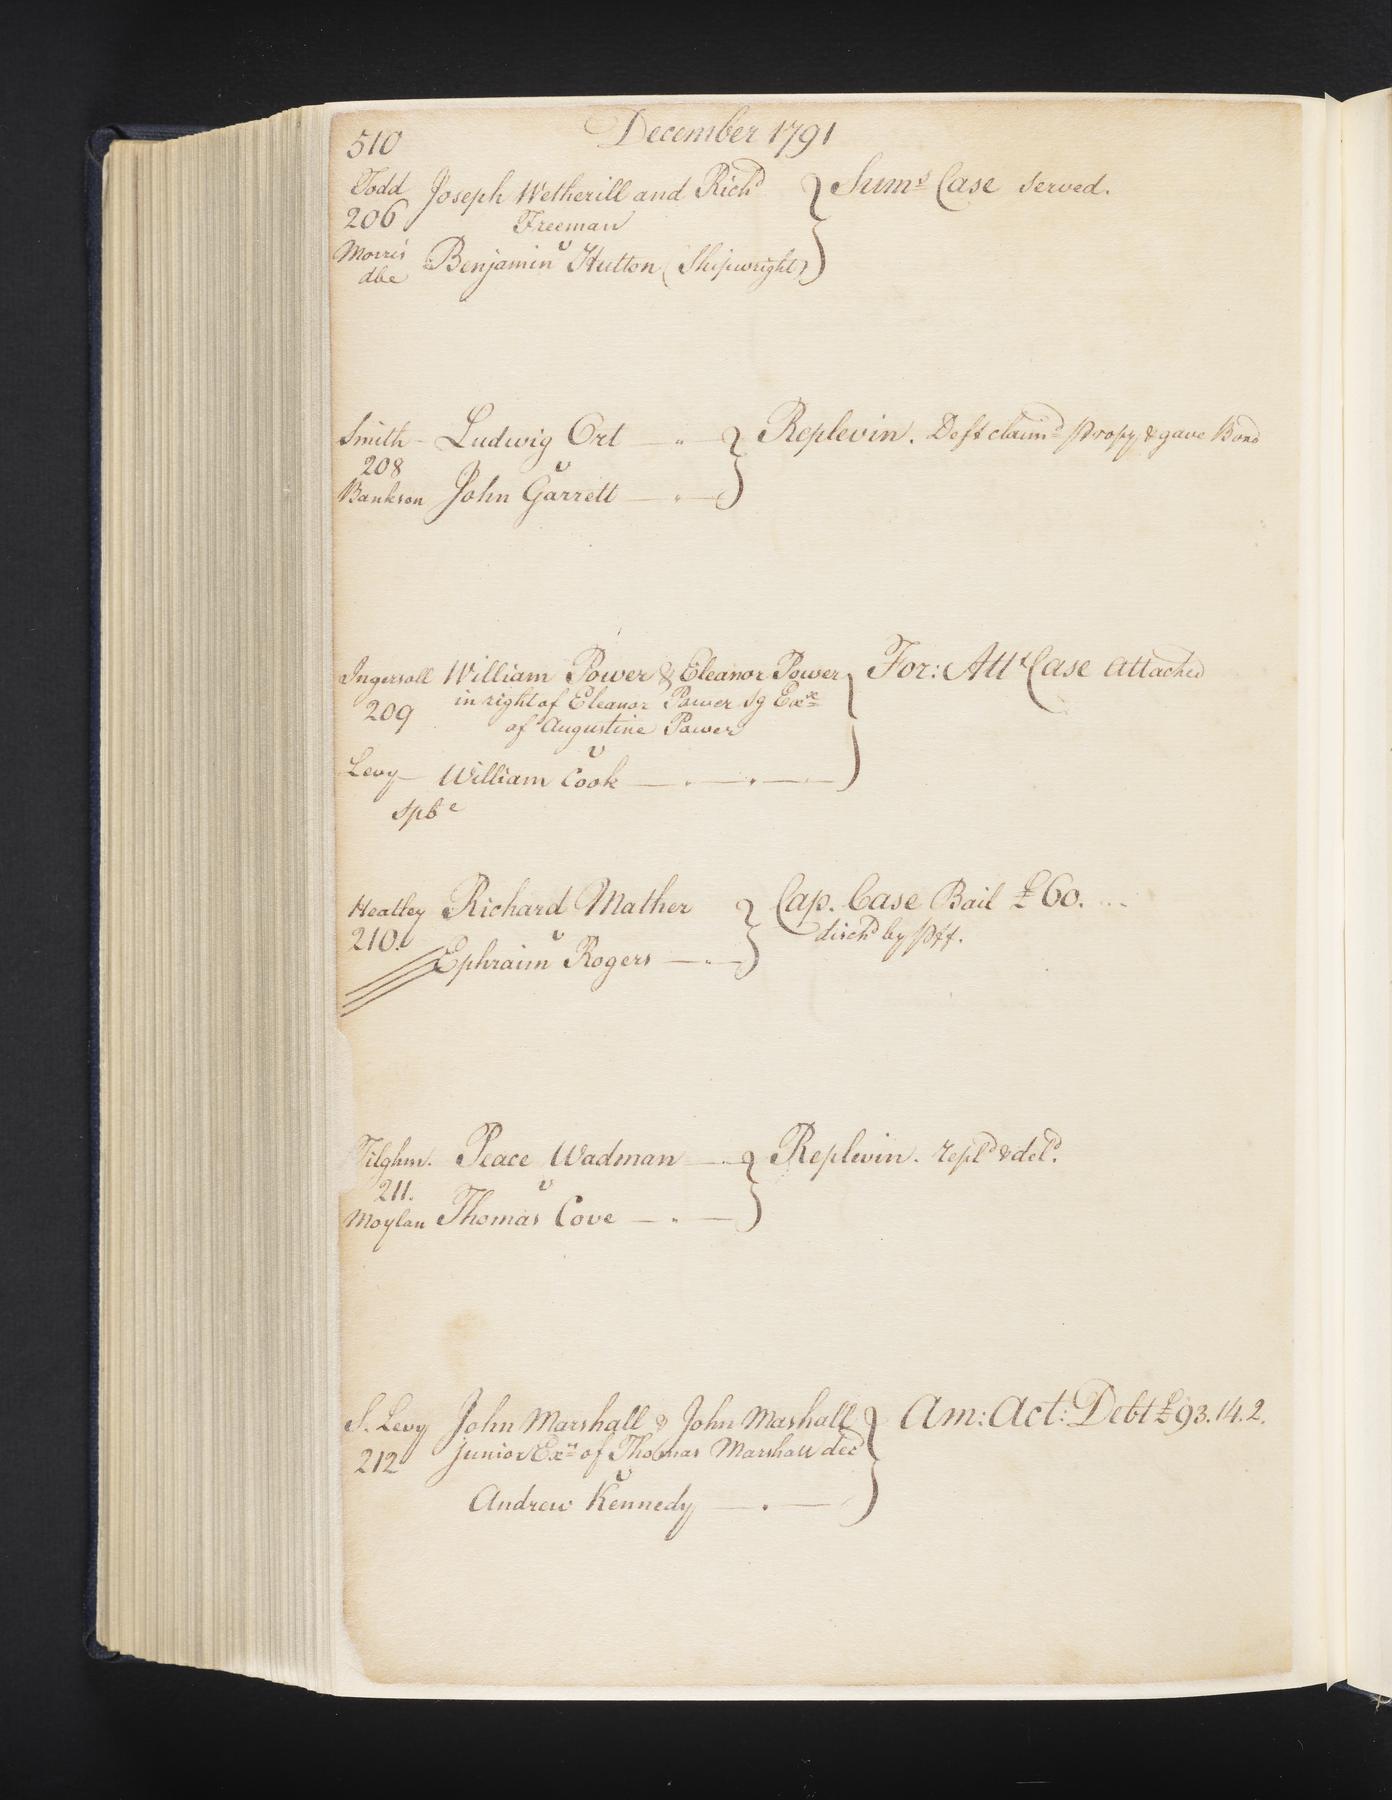 510 December 1791
Todd Joseph Wetherill and Richd } Sums Case served.
206 Freeman
v
Morris Benjamin Hutton (Shipwright)
dbe
Smith - Ludwig Ort — " — } Replevin. Deft claimd propy & gave Bond
208 v
Bankson John Garrett — " —
Ingersoll William Power & Eleanor Power } For: Att Case attached
209 in right of Eleanor Power sg Exx
of Augustine Power
v
Levy — William Cook — " — " —
spbe
Heatley Richard Mather } Cap. Case Bail £60. ...
210. v dischd by Plff.
Ephraim Rogers — " —
Tilghm. Peace Wadman — " } Replevin. repld & deld.
211. v
Moylan Thomas Cove — " —
S. Levy John Marshall & John Mashall } Am: Act: Debt £93.14.2.
212 junior Exrs of Thomas Marshall decd
v
Andrew Kennedy — " —